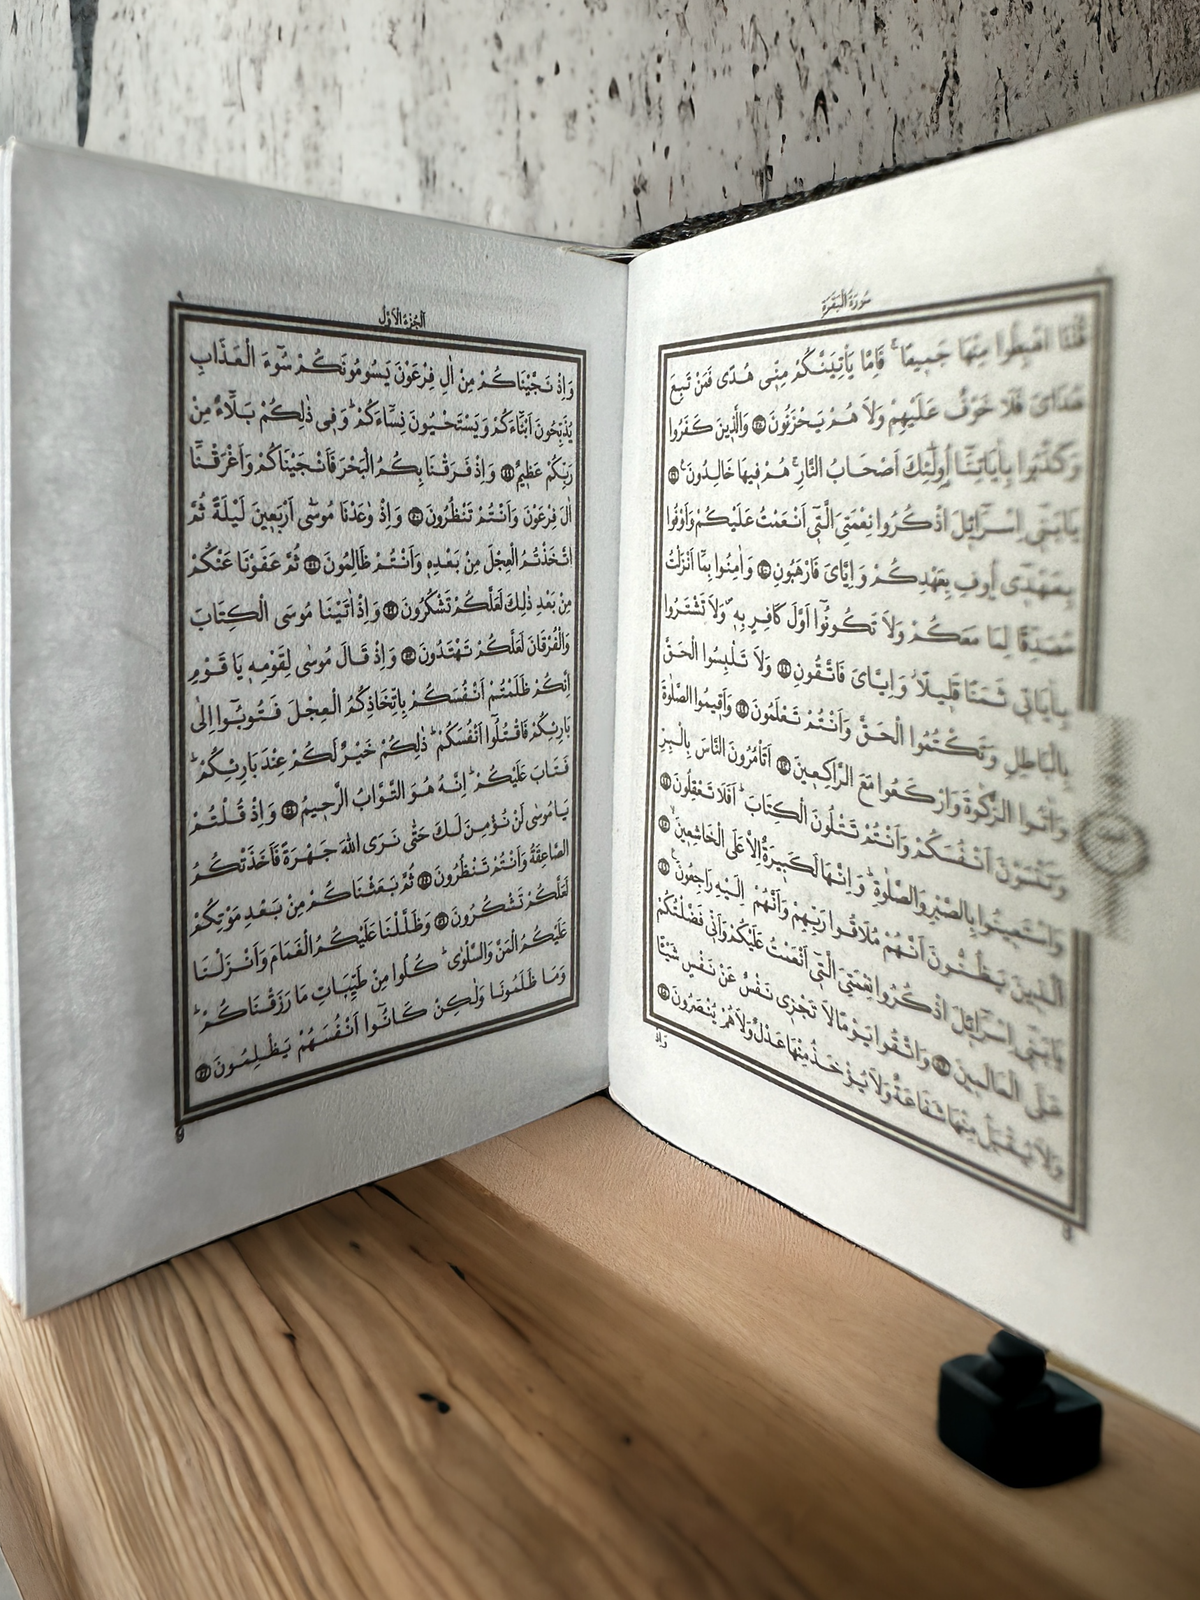 سُورَةُ الْبَقَرَةِ
قُلْنَا اهْبِطُوا مِنْهَا جَمِيعًا ۚ فَاِمَّا يَأْتِيَنَّكُمْ مِنّ۪ي هُدًى فَمَنْ تَبِعَ
هُدَايَ فَلَا خَوْفٌ عَلَيْهِمْ وَلَا هُمْ يَحْزَنُونَ ﴿٣٨﴾ وَالَّذ۪ينَ كَفَرُوا
وَكَذَّبُوا بِاٰيَاتِنَٓا اُو۬لٰٓئِكَ اَصْحَابُ النَّارِۚ هُمْ ف۪يهَا خَالِدُونَ۟ ﴿٣٩﴾
يَا بَن۪ٓي اِسْرَٓائ۪لَ اذْكُرُوا نِعْمَتِيَ الَّت۪ٓي اَنْعَمْتُ عَلَيْكُمْ وَاَوْفُوا
بِعَهْد۪ٓي اُو۫فِ بِعَهْدِكُمْ وَاِيَّايَ فَارْهَبُونِ ﴿٤٠﴾ وَاٰمِنُوا بِمَٓا اَنْزَلْتُ
مُصَدِّقًا لِمَا مَعَكُمْ وَلَا تَكُونُٓوا اَوَّلَ كَافِرٍ بِه۪ۖ وَلَا تَشْتَرُوا
بِاٰيَات۪ي ثَمَنًا قَل۪يلًاۘ وَاِيَّايَ فَاتَّقُونِ ﴿٤١﴾ وَلَا تَلْبِسُوا الْحَقَّ
بِالْبَاطِلِ وَتَكْتُمُوا الْحَقَّ وَاَنْتُمْ تَعْلَمُونَ ﴿٤٢﴾ وَاَق۪يمُوا الصَّلٰوةَ
وَاٰتُوا الزَّكٰوةَ وَارْكَعُوا مَعَ الرَّاكِع۪ينَ ﴿٤٣﴾ اَتَأْمُرُونَ النَّاسَ بِالْبِرِّ
وَتَنْسَوْنَ اَنْفُسَكُمْ وَاَنْتُمْ تَتْلُونَ الْكِتَابَۜ اَفَلَا تَعْقِلُونَ ﴿٤٤﴾
وَاسْتَع۪ينُوا بِالصَّبْرِ وَالصَّلٰوةِۜ وَاِنَّهَا لَكَب۪يرَةٌ اِلَّا عَلَى الْخَاشِع۪ينَۙ ﴿٤٥﴾
اَلَّذ۪ينَ يَظُنُّونَ اَنَّهُمْ مُلَاقُوا رَبِّهِمْ وَاَنَّهُمْ اِلَيْهِ رَاجِعُونَ۟ ﴿٤٦﴾
يَا بَن۪ٓي اِسْرَٓائ۪لَ اذْكُرُوا نِعْمَتِيَ الَّت۪ٓي اَنْعَمْتُ عَلَيْكُمْ وَاَنّ۪ي فَضَّلْتُكُمْ
عَلَى الْعَالَم۪ينَ ﴿٤٧﴾ وَاتَّقُوا يَوْمًا لَا تَجْز۪ي نَفْسٌ عَنْ نَفْسٍ شَيْـًٔا
وَلَا يُقْبَلُ مِنْهَا شَفَاعَةٌ وَلَا يُؤْخَذُ مِنْهَا عَدْلٌ وَلَا هُمْ يُنْصَرُونَ ﴿٤٨﴾
وَاِذْ
اَلْجُزْءُ الْاَوَّلُ
وَاِذْ نَجَّيْنَاكُمْ مِنْ اٰلِ فِرْعَوْنَ يَسُومُونَكُمْ سُٓوءَ الْعَذَابِ
يُذَبِّحُونَ اَبْنَٓاءَكُمْ وَيَسْتَحْيُونَ نِسَٓاءَكُمْۜ وَف۪ي ذٰلِكُمْ بَلَٓاءٌ مِنْ
رَبِّكُمْ عَظ۪يمٌ ﴿٤٩﴾ وَاِذْ فَرَقْنَا بِكُمُ الْبَحْرَ فَاَنْجَيْنَاكُمْ وَاَغْرَقْنَٓا
اٰلَ فِرْعَوْنَ وَاَنْتُمْ تَنْظُرُونَ ﴿٥٠﴾ وَاِذْ وٰعَدْنَا مُوسٰٓى اَرْبَع۪ينَ لَيْلَةً ثُمَّ
اتَّخَذْتُمُ الْعِجْلَ مِنْ بَعْدِه۪ وَاَنْتُمْ ظَالِمُونَ ﴿٥١﴾ ثُمَّ عَفَوْنَا عَنْكُمْ
مِنْ بَعْدِ ذٰلِكَ لَعَلَّكُمْ تَشْكُرُونَ ﴿٥٢﴾ وَاِذْ اٰتَيْنَا مُوسَى الْكِتَابَ
وَالْفُرْقَانَ لَعَلَّكُمْ تَهْتَدُونَ ﴿٥٣﴾ وَاِذْ قَالَ مُوسٰى لِقَوْمِه۪ يَا قَوْمِ
اِنَّكُمْ ظَلَمْتُمْ اَنْفُسَكُمْ بِاتِّخَاذِكُمُ الْعِجْلَ فَتُوبُٓوا اِلٰى
بَارِئِكُمْ فَاقْتُلُٓوا اَنْفُسَكُمْۜ ذٰلِكُمْ خَيْرٌ لَكُمْ عِنْدَ بَارِئِكُمْۜ
فَتَابَ عَلَيْكُمْۜ اِنَّهُ هُوَ التَّوَّابُ الرَّح۪يمُ ﴿٥٤﴾ وَاِذْ قُلْتُمْ
يَا مُوسٰى لَنْ نُؤْمِنَ لَكَ حَتّٰى نَرَى اللّٰهَ جَهْرَةً فَاَخَذَتْكُمُ
الصَّاعِقَةُ وَاَنْتُمْ تَنْظُرُونَ ﴿٥٥﴾ ثُمَّ بَعَثْنَاكُمْ مِنْ بَعْدِ مَوْتِكُمْ
لَعَلَّكُمْ تَشْكُرُونَ ﴿٥٦﴾ وَظَلَّلْنَا عَلَيْكُمُ الْغَمَامَ وَاَنْزَلْنَا
عَلَيْكُمُ الْمَنَّ وَالسَّلْوٰىۜ كُلُوا مِنْ طَيِّبَاتِ مَا رَزَقْنَاكُمْۜ
وَمَا ظَلَمُونَا وَلٰكِنْ كَانُٓوا اَنْفُسَهُمْ يَظْلِمُونَ ﴿٥٧﴾